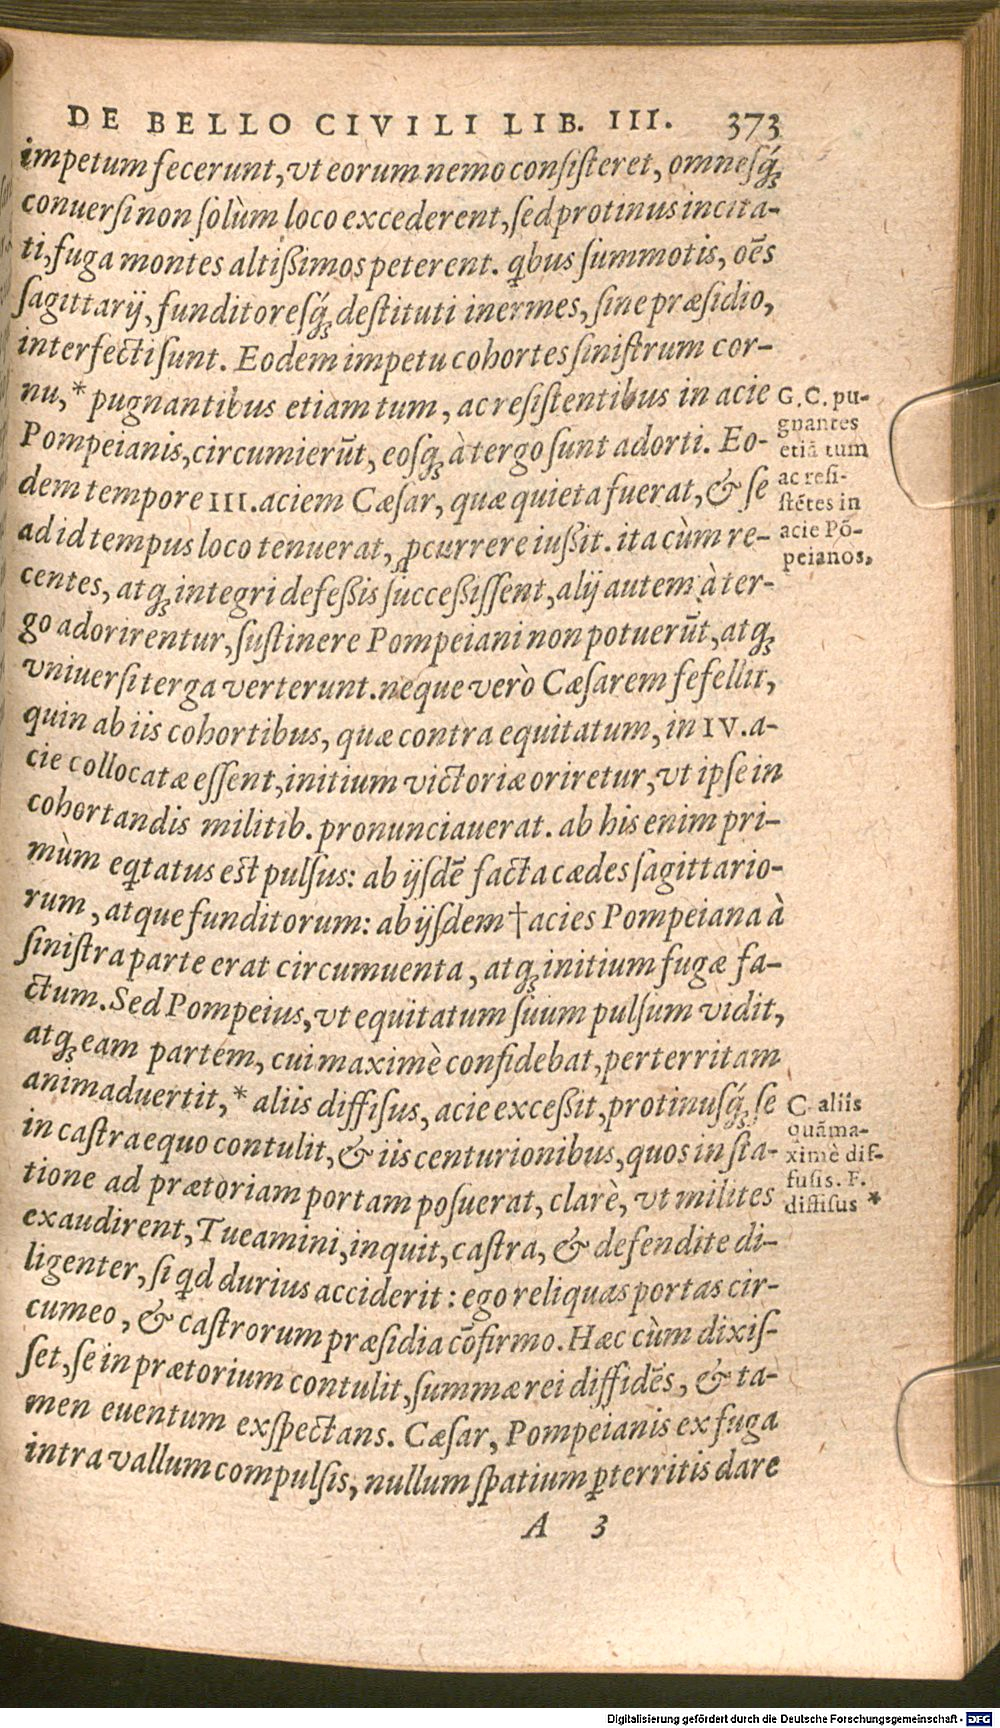 DE BELLO CIVILI LIB. III. 373
impetum fecerunt, vt eorum nemo consisteret, omnesq́;
conuersi non solùm loco excederent, sed protinus incita-
ti, fuga montes altißimos peterent. qbus summotis, oēs
sagittarij, funditoresq́; destituti inermes, sine præsidio,
interfecti sunt. Eodem impetu cohortes sinistrum cor-
nu, * pugnantibus etiam tum, ac resistentibus in acie
Pompeianis, circumierūt, eosq; à tergo sunt adorti. Eo-
dem tempore III. aciem Cæsar, quæ quieta fuerat, & se
ad id tempus loco tenuerat, ꝓcurrere iußit. ita cùm re-
centes, atq; integri defeßis succeßissent, alij autem à ter-
go adorirentur, sustinere Pompeiani non potuerūt, atq;
vniuersi terga verterunt. neque verò Cæsarem fefellit,
quin ab iis cohortibus, quæ contra equitatum, in IV. a-
cie collocatæ essent, initium victoriæ oriretur, vt ipse in
cohortandis militib. pronunciauerat. ab his enim pri-
mùm eqtatus est pulsus: ab ijsdē facta cædes sagittario-
rum, atque funditorum: ab ijsdem † acies Pompeiana à
sinistra parte erat circumuenta, atq; initium fugæ fa-
ctum. Sed Pompeius, vt equitatum suum pulsum vidit,
atq; eam partem, cui maximè confidebat, perterritam
animaduertit, * aliis diffisus, acie exceßit, protinusq́; se
in castra equo contulit, & iis centurionibus, quos in sta-
tione ad prætoriam portam posuerat, clarè, vt milites
exaudirent, Tueamini, inquit, castra, & defendite di-
ligenter, si qd durius acciderit: ego reliquas portas cir-
cumeo, & castrorum præsidia cōfirmo. Hæc cùm dixis-
set, se in prætorium contulit, summæ rei diffidēs, & ta-
men euentum exspectans. Cæsar, Pompeianis ex fuga
intra vallum compulsis, nullum spatium ꝑterritis dare
A 3
G. C. pu-
gnantes
etiā tum
ac resi-
stētes in
acie Pō-
peianos.
C. aliis
quāma-
ximè dif-
fusis. F.
diffisus *
Digitalisierung gefördert durch die Deutsche Forschungsgemeinschaft - DFG